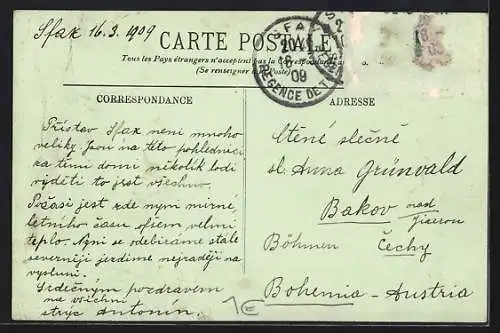 Sfax 16.3.1909
CARTE POSTALE
Tous les Pays étrangers n'acceptent pas la Correspondance au
(Se renseigner à la Poste)
SFAX
16
09
RÉGENCE DE
CORRESPONDANCE
ADRESSE
Přístav Sfax není mnoho
veliký. Jsou na této pohlednici
za těmi domi několik lodí
viděti to jest všechno.
Počasí jest zde nyní mírné,
letního času ofšem velmi
teplo. Nyní se odebíráme stále
severněji jezdíme nejraději na
výsluní.
Srdečným pozdravem
na všichni
strýc Antonín.
Ctěné slečně
sl. Anna Grünvald
Bakov nad
Jizerou
Böhmen Čechy
Bohemia - Austria
1€